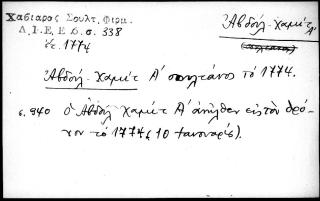 Χασιαρος Σουλτ. Φιρμ.
Δ.Ι.Ε.Ε. 6. σ. 338
ἔτ. 1774
Ἀβδοὺλ-Χαμὶτ Α'
Ἀβδοὺλ-Χαμὶτ Α' σουλτάνος τὸ 1774.
σ. 940 ὁ Ἀβδοὺλ Χαμὶτ Α' ἀνῆλθεν εἰς τὸν θρό-
νον τὸ 1774 (10 Ιανουαρίς).